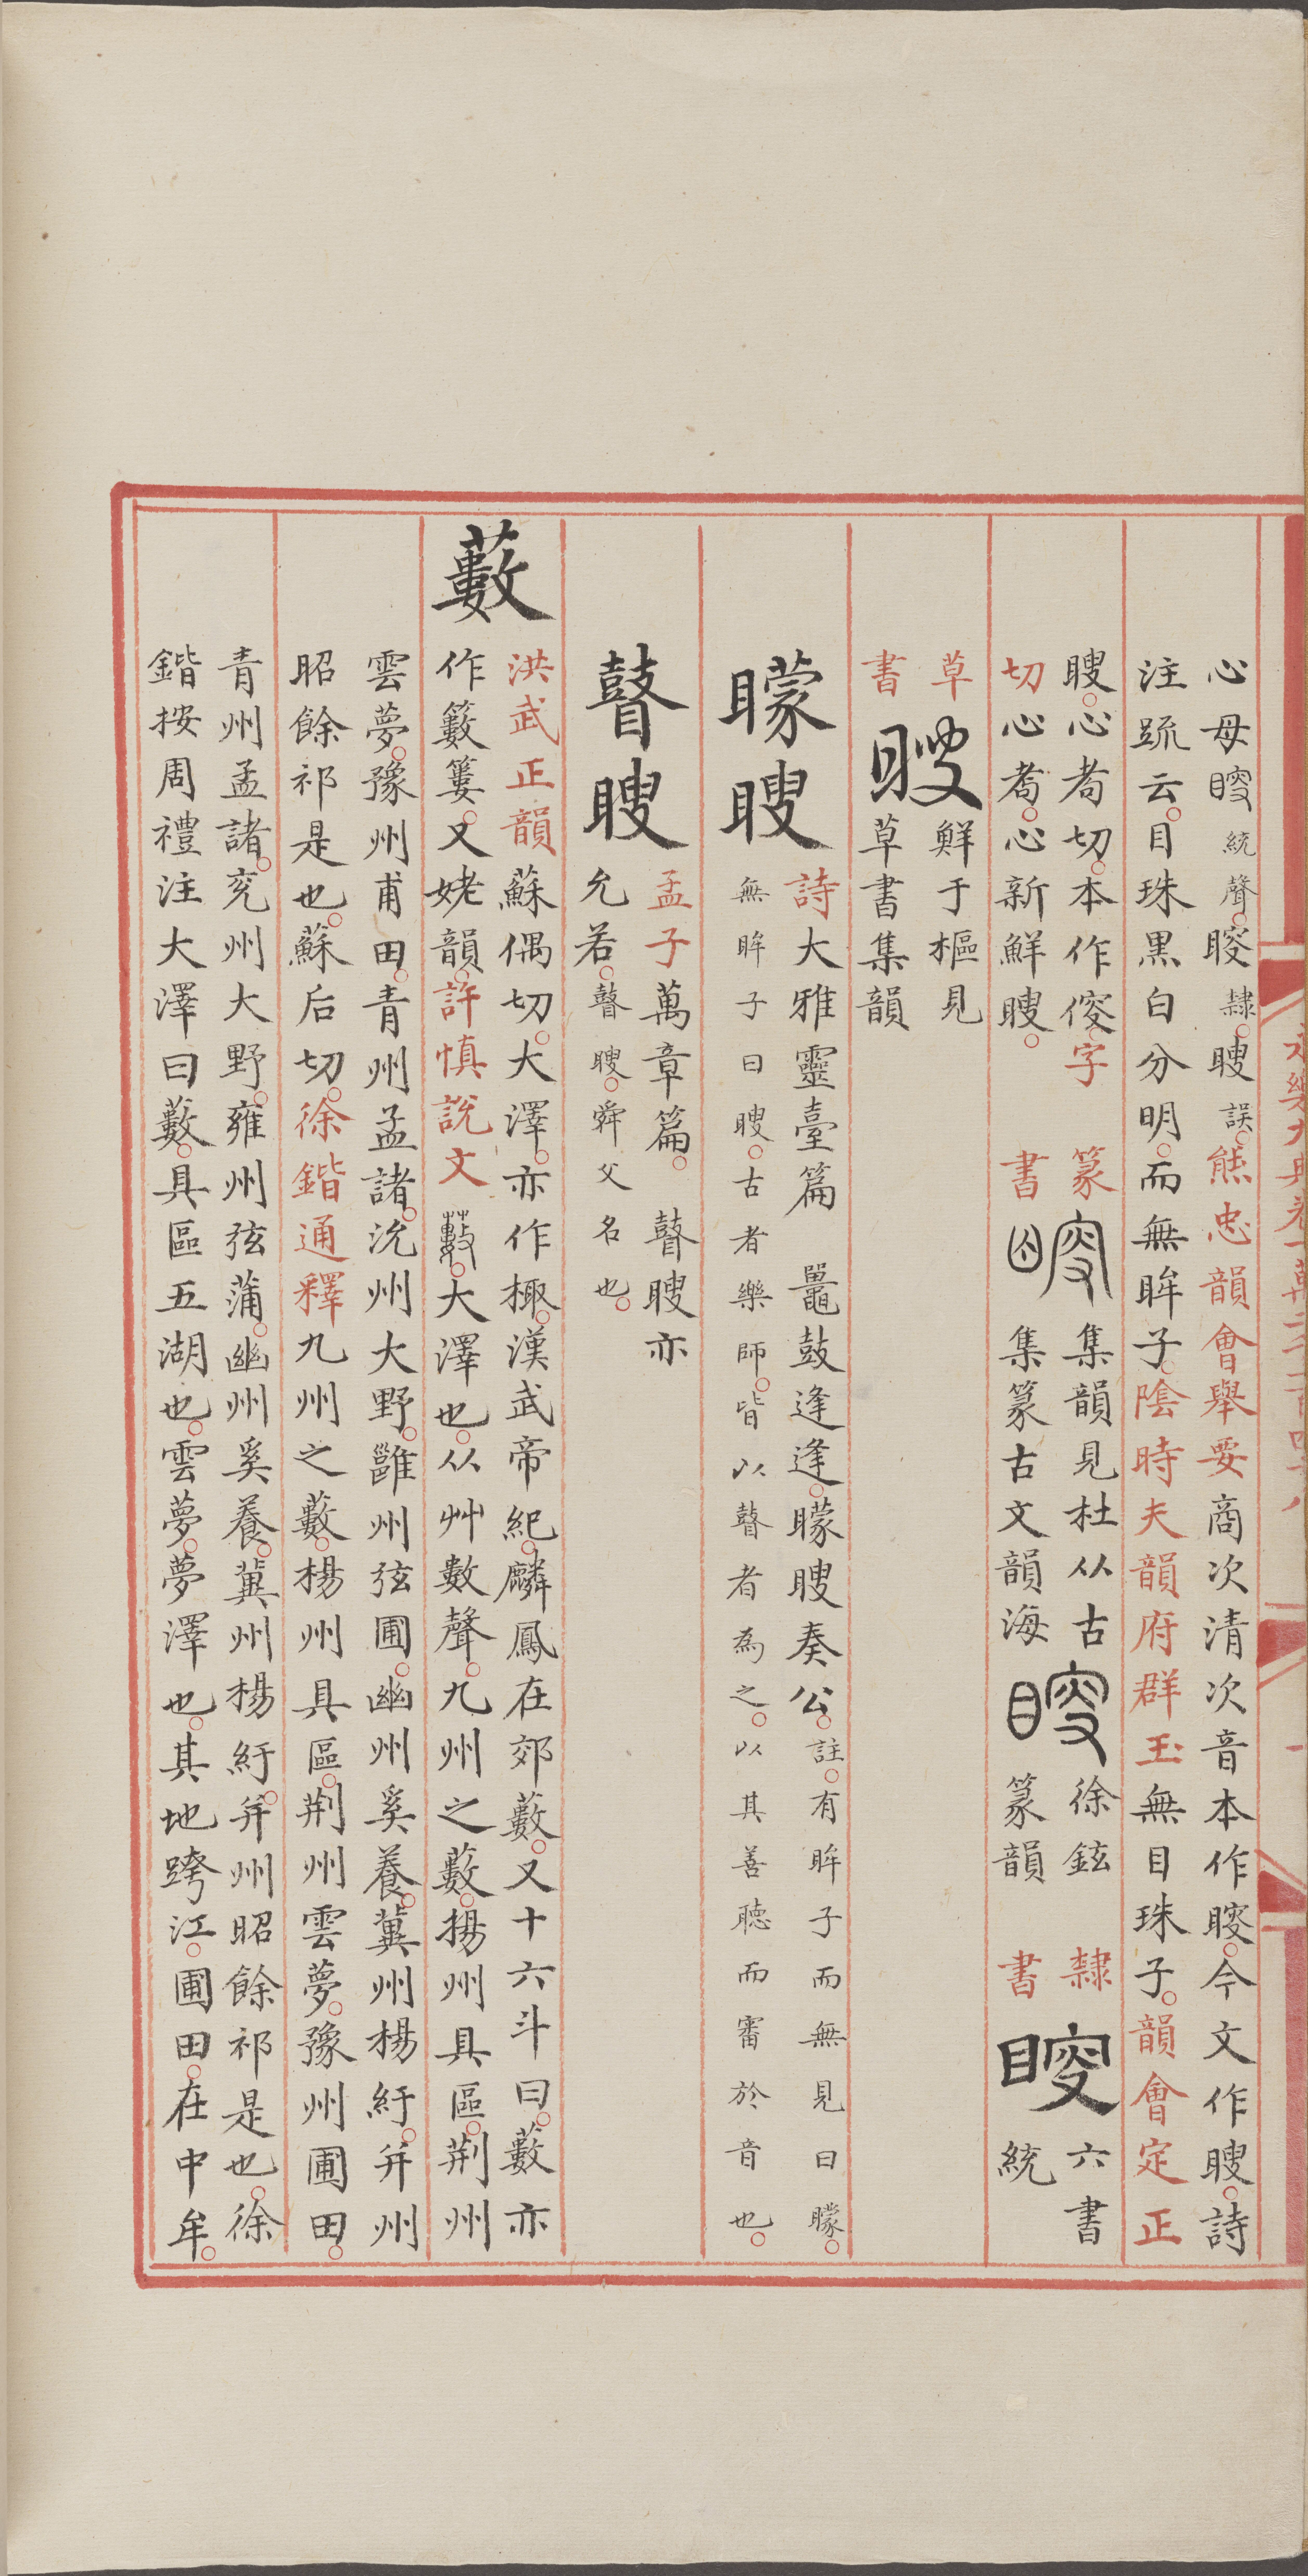 心母䀮統聲䁂隸瞍誤熊忠韻會舉要商次清次音本作䁂今文作瞍詩
注䟽云目珠黑白分明而無眸子陰時夫韻府群玉無目珠子韻會定正
瞍心者切本作傁字
切心者心新鮮瞍
篆書
集韻見杜从古
集篆古文韻海
徐鉉
篆韻
隸書
六書
統
草書
瞍
鮮于樞見
草書集韻
矇瞍
詩大雅靈臺篇 鼉鼓逢逢矇瞍奏公註有眸子而無見曰矇
無眸子曰瞍古者樂師皆以瞽者為之以其善聽而審於音也
瞽瞍
孟子萬章篇 瞽瞍亦
允若瞽瞍舜父名也
藪
洪武正韻蘇偶切大澤亦作棷漢武帝紀麟鳳在郊藪又十六斗曰藪亦
作籔簍又姥韻許慎說文藪大澤也从艸數聲九州之藪揚州具區荆州
雲夢豫州甫田青州孟諸沇州大野雝州弦圃幽州奚養冀州楊紆并州
昭餘祁是也蘇后切徐鍇通釋九州之藪楊州具區荆州雲夢豫州圃田
青州孟諸兖州大野雍州弦蒲幽州奚養冀州楊紆并州昭餘祁是也徐
鍇按周禮注大澤曰藪具區五湖也雲夢夢澤也其地跨江圃田在中牟
永樂大典卷一萬二千一百四十八